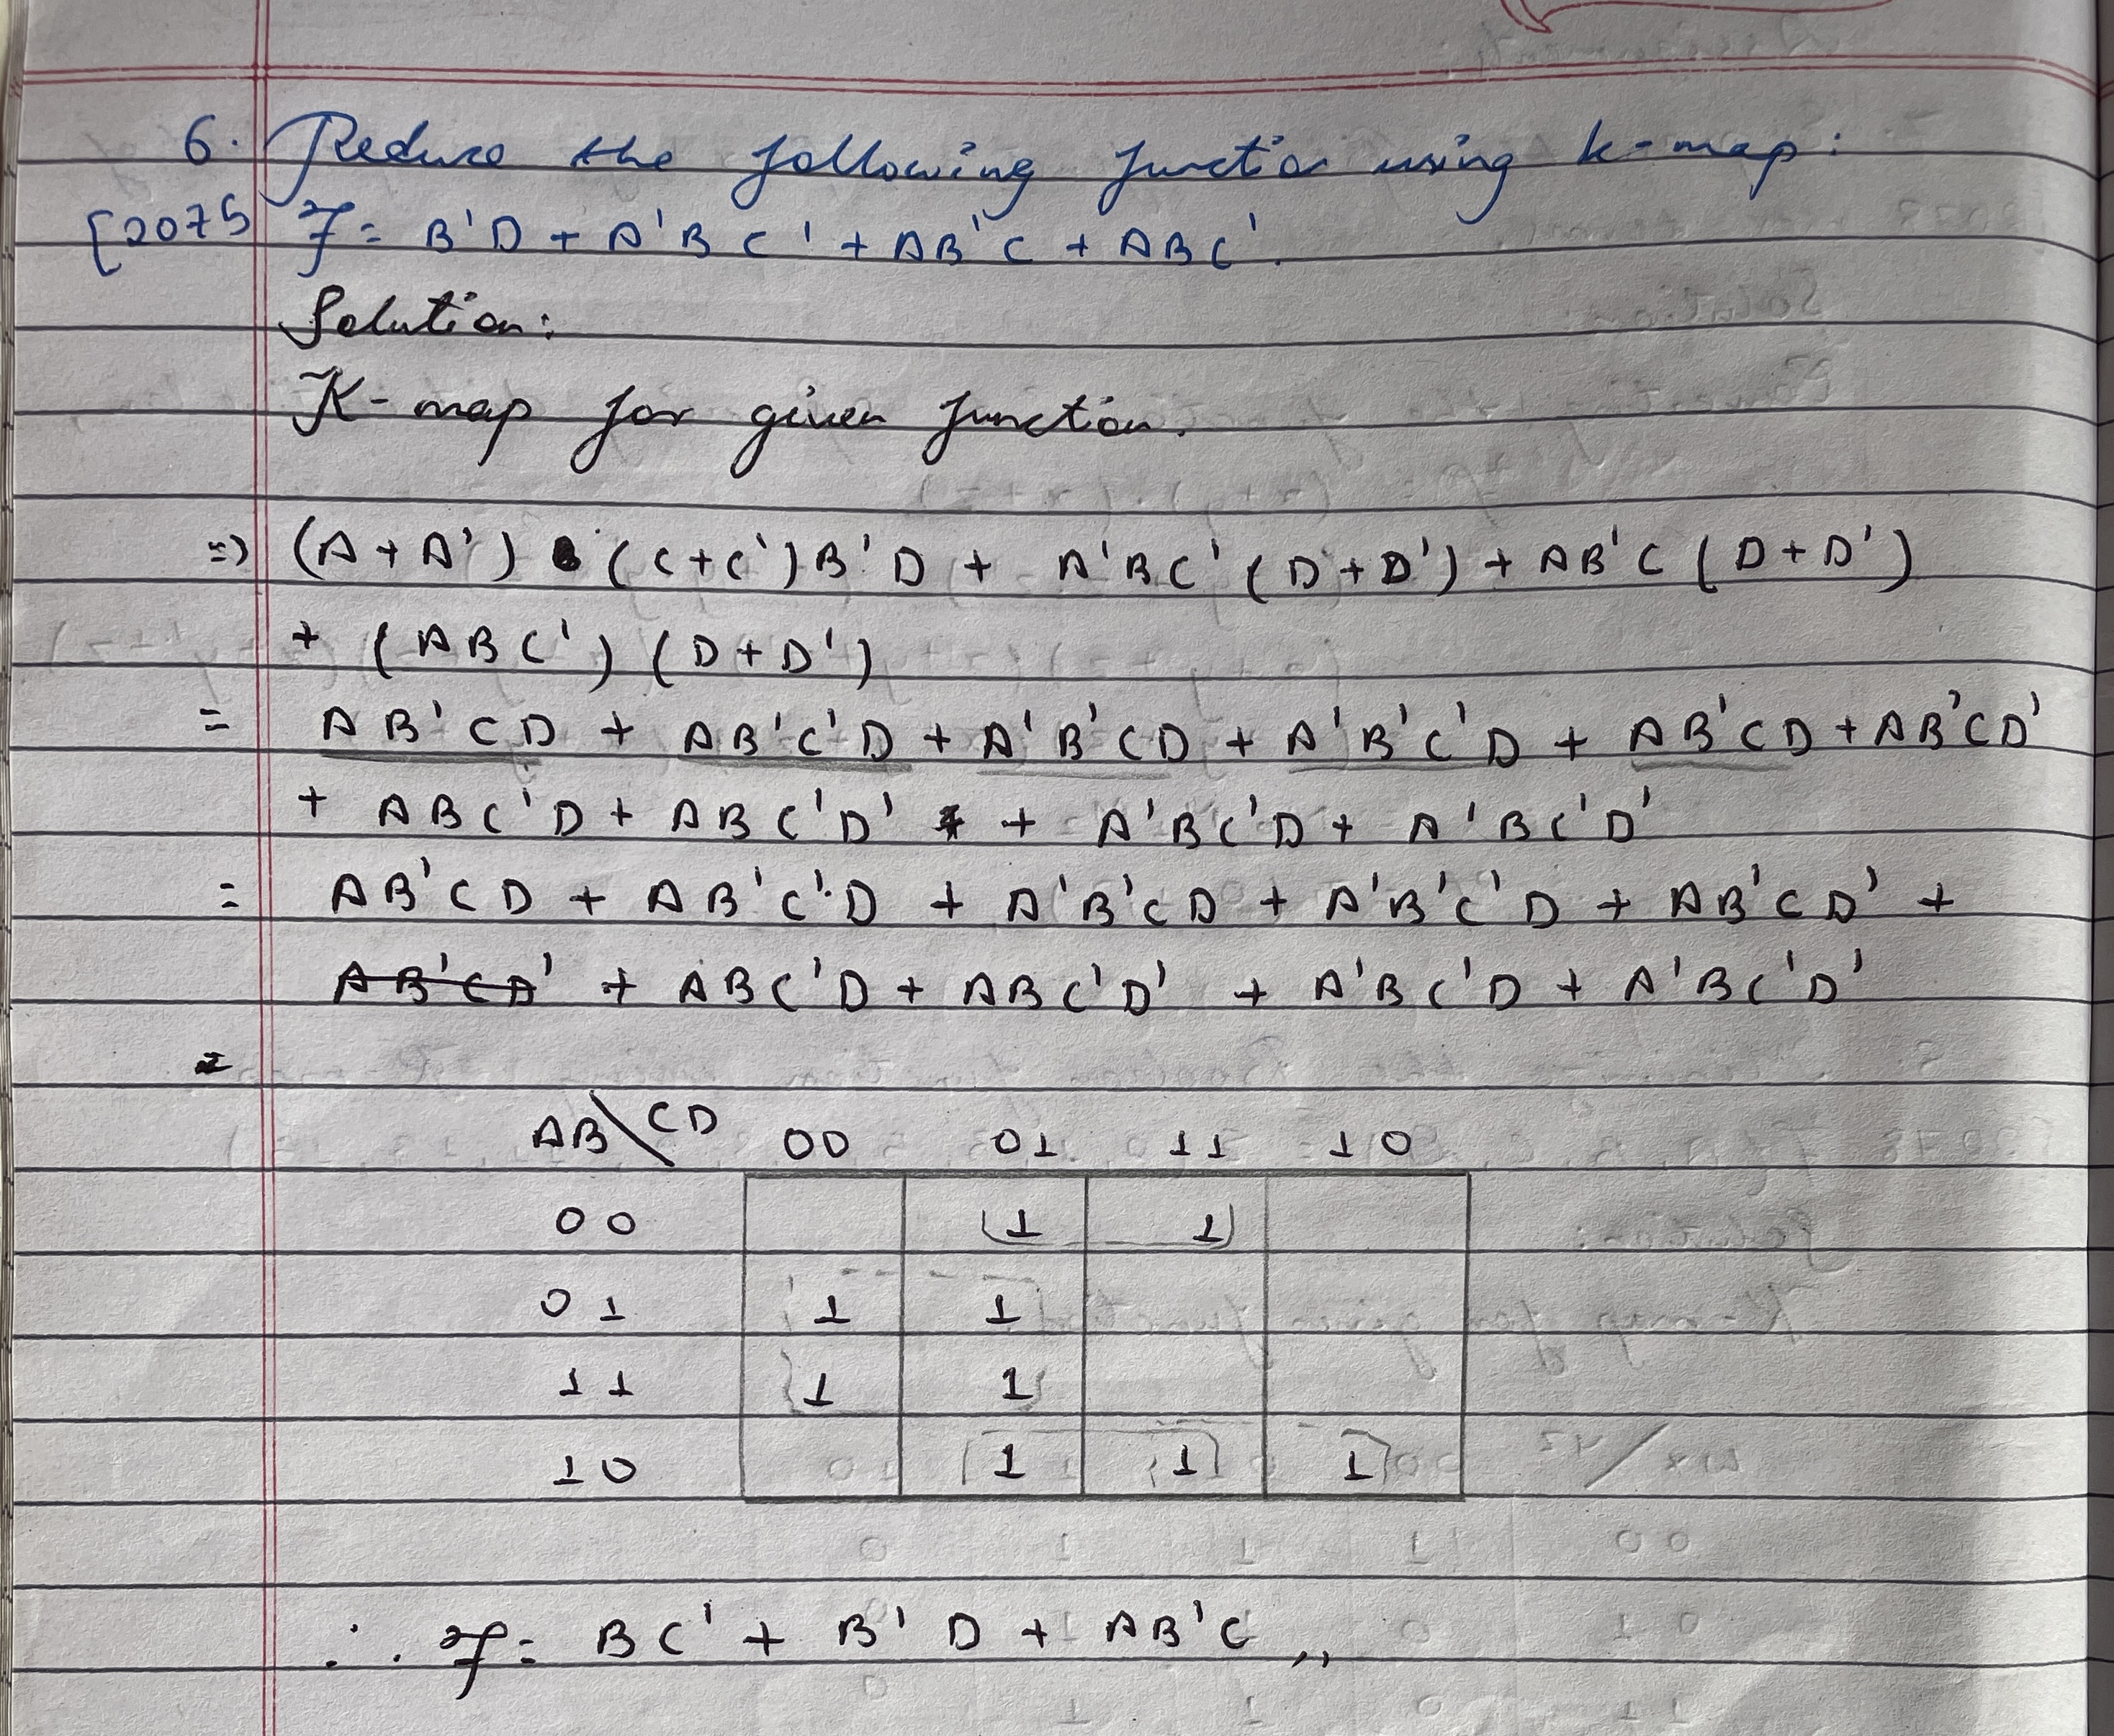 6. Reduce the following function using k-map:
[2075] F = B'D + A'BC' + AB'C + ABC'.
Solution:
K-map for given function.
=) (A+A') (C+C')B'D + A'BC'(D+D') + AB'C(D+D')
+ (ABC')(D+D')
= AB'CD + AB'C'D + A'B'CD + A'B'C'D + AB'CD + AB'CD'
+ ABC'D + ABC'D' + A'BC'D + A'BC'D'
= AB'CD + AB'C'D + A'B'CD + A'B'C'D + AB'CD' +
AB'CD' + ABC'D + ABC'D' + A'BC'D + A'BC'D'
=
AB\CD 00 01 11 10
00 1 1
01 1 1
11 1 1
10 1 1 1
∴ F = BC' + B'D + AB'C ,,